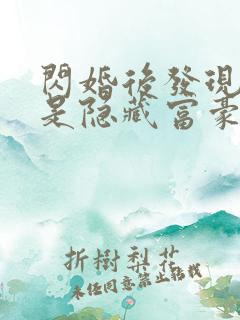 閃婚後發現
是隐藏富豪
折樹梨花
未经同意禁止转载